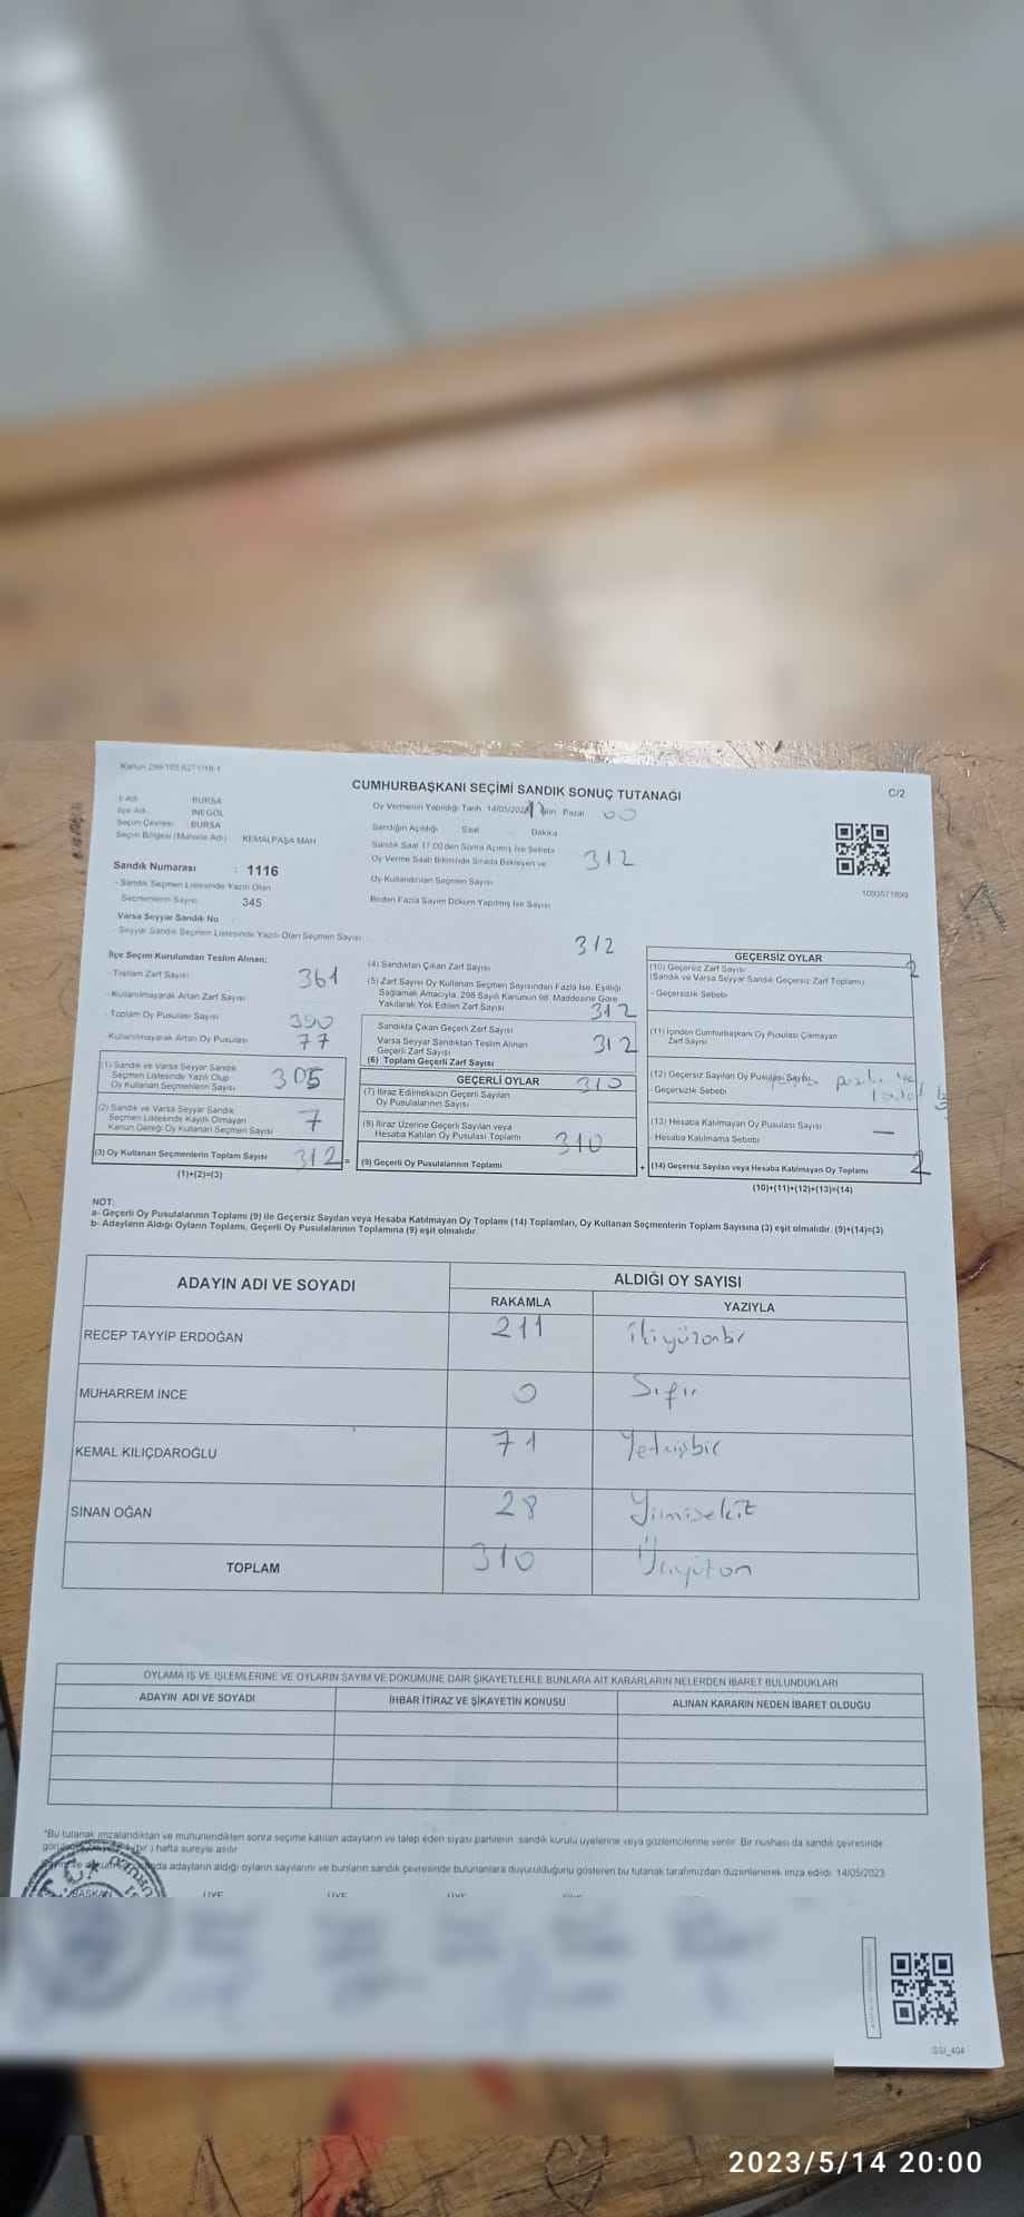 CUMHURBAŞKANI SEÇİMİ SANDIK SONUÇ TUTANAĞI
C/2
İl Adı : BURSA
İlçe Adı : İNEGÖL
Seçim Çevresi : BURSA
Seçim Bölgesi (Mahalle Adı) KEMALPAŞA MAH
Sandık Numarası : 1116
- Sandık Seçmen Listesinde Yazılı Olan
Seçmenlerin Sayısı 345
Varsa Seyyar Sandık No
- Seyyar Sandık Seçmen Listesinde Yazılı Olan Seçmen Sayısı
Oy Vermenin Yapıldığı Tarih 14/05/2023 Pazar
Sandığın Açıldığı Saat Dakika
Sandık Saat 17.00'den Sonra Açılmış İse Sebebi
Oy Verme Saati Bitiminde Sırada Bekleyen ve
Oy Kullandırılan Seçmen Sayısı 312
Birden Fazla Sayım Döküm Yapılmış İse Sayısı
İlçe Seçim Kurulundan Teslim Alınan:
- Toplam Zarf Sayısı 361
- Kullanılmayarak Artan Zarf Sayısı
- Toplam Oy Pusulası Sayısı 390
Kullanılmayarak Artan Oy Pusulası 77
(1) Sandık ve Varsa Seyyar Sandık
Seçmen Listesinde Yazılı Olup
Oy Kullanan Seçmenlerin Sayısı 305
(2) Sandık ve Varsa Seyyar Sandık
Seçmen Listesinde Kayıtlı Olmayan
Kanun Gereği Oy Kullanan Seçmen Sayısı 7
(3) Oy Kullanan Seçmenlerin Toplam Sayısı 312 =
(1)+(2)=(3)
312
(4) Sandıktan Çıkan Zarf Sayısı
(5) Zarf Sayısı Oy Kullanan Seçmen Sayısından Fazla İse, Eşitliği
Sağlamak Amacıyla, 298 Sayılı Kanunun 98. Maddesine Göre
Yakılarak Yok Edilen Zarf Sayısı 312
Sandıkta Çıkan Geçerli Zarf Sayısı
Varsa Seyyar Sandıktan Teslim Alınan
Geçerli Zarf Sayısı 312
(6) Toplam Geçerli Zarf Sayısı
GEÇERLİ OYLAR 310
(7) İtiraz Edilmeksizin Geçerli Sayılan
Oy Pusulalarının Sayısı
(8) İtiraz Üzerine Geçerli Sayılan veya
Hesaba Katılan Oy Pusulası Toplamı 310
(9) Geçerli Oy Pusulalarının Toplamı +
GEÇERSİZ OYLAR
(10) Geçersiz Zarf Sayısı 2
(Sandık ve Varsa Seyyar Sandık Geçersiz Zarf Toplamı)
- Geçersizlik Sebebi
(11) İçinden Cumhurbaşkanı Oy Pusulası Çıkmayan
Zarf Sayısı
(12) Geçersiz Sayılan Oy Pusulası Sayısı
- Geçersizlik Sebebi
(13) Hesaba Katılmayan Oy Pusulası Sayısı —
- Hesaba Katılmama Sebebi
(14) Geçersiz Sayılan veya Hesaba Katılmayan Oy Toplamı 2
(10)+(11)+(12)+(13)=(14)
NOT:
a- Geçerli Oy Pusulasının Toplamı (9) ile Geçersiz Sayılan veya Hesaba Katılmayan Oy Toplamı (14) Toplamları, Oy Kullanan Seçmenlerin Toplam Sayısına (3) eşit olmalıdır. (9)+(14)=(3)
b- Adayların Aldığı Oyların Toplamı, Geçerli Oy Pusulalarının Toplamına (9) eşit olmalıdır.
ADAYIN ADI VE SOYADI ALDIĞI OY SAYISI
RAKAMLA YAZIYLA
RECEP TAYYİP ERDOĞAN 211 ikiyüzonbir
MUHARREM İNCE 0 Sıfır
KEMAL KILIÇDAROĞLU 71 Yetmişbir
SİNAN OĞAN 28 Yirmisekiz
TOPLAM 310 Üçyüzon
OYLAMA İŞ VE İŞLEMLERİNE VE OYLARIN SAYIM VE DÖKÜMÜNE DAİR ŞİKAYETLERLE BUNLARA AİT KARARLARIN NELERDEN İBARET BULUNDUKLARI
ADAYIN ADI VE SOYADI İHBAR İTİRAZ VE ŞİKAYETİN KONUSU ALINAN KARARIN NEDEN İBARET OLDUĞU
*Bu tutanak imzalandıktan ve mühürlendikten sonra seçime katılan adayların ve talep eden siyasi partilerin sandık kurulu üyelerine veya gözlemcilerine verilir. Bir nushası da sandık çevresinde
(bir) hafta süreyle asılır
adayların aldığı oyların sayılarını ve bunların sandık çevresinde bulunanlara duyurulduğunu gösteren bu tutanak tarafımızdan düzenlenerek imza edildi. 14/05/2023
BAŞKAN
2023/5/14 20:00